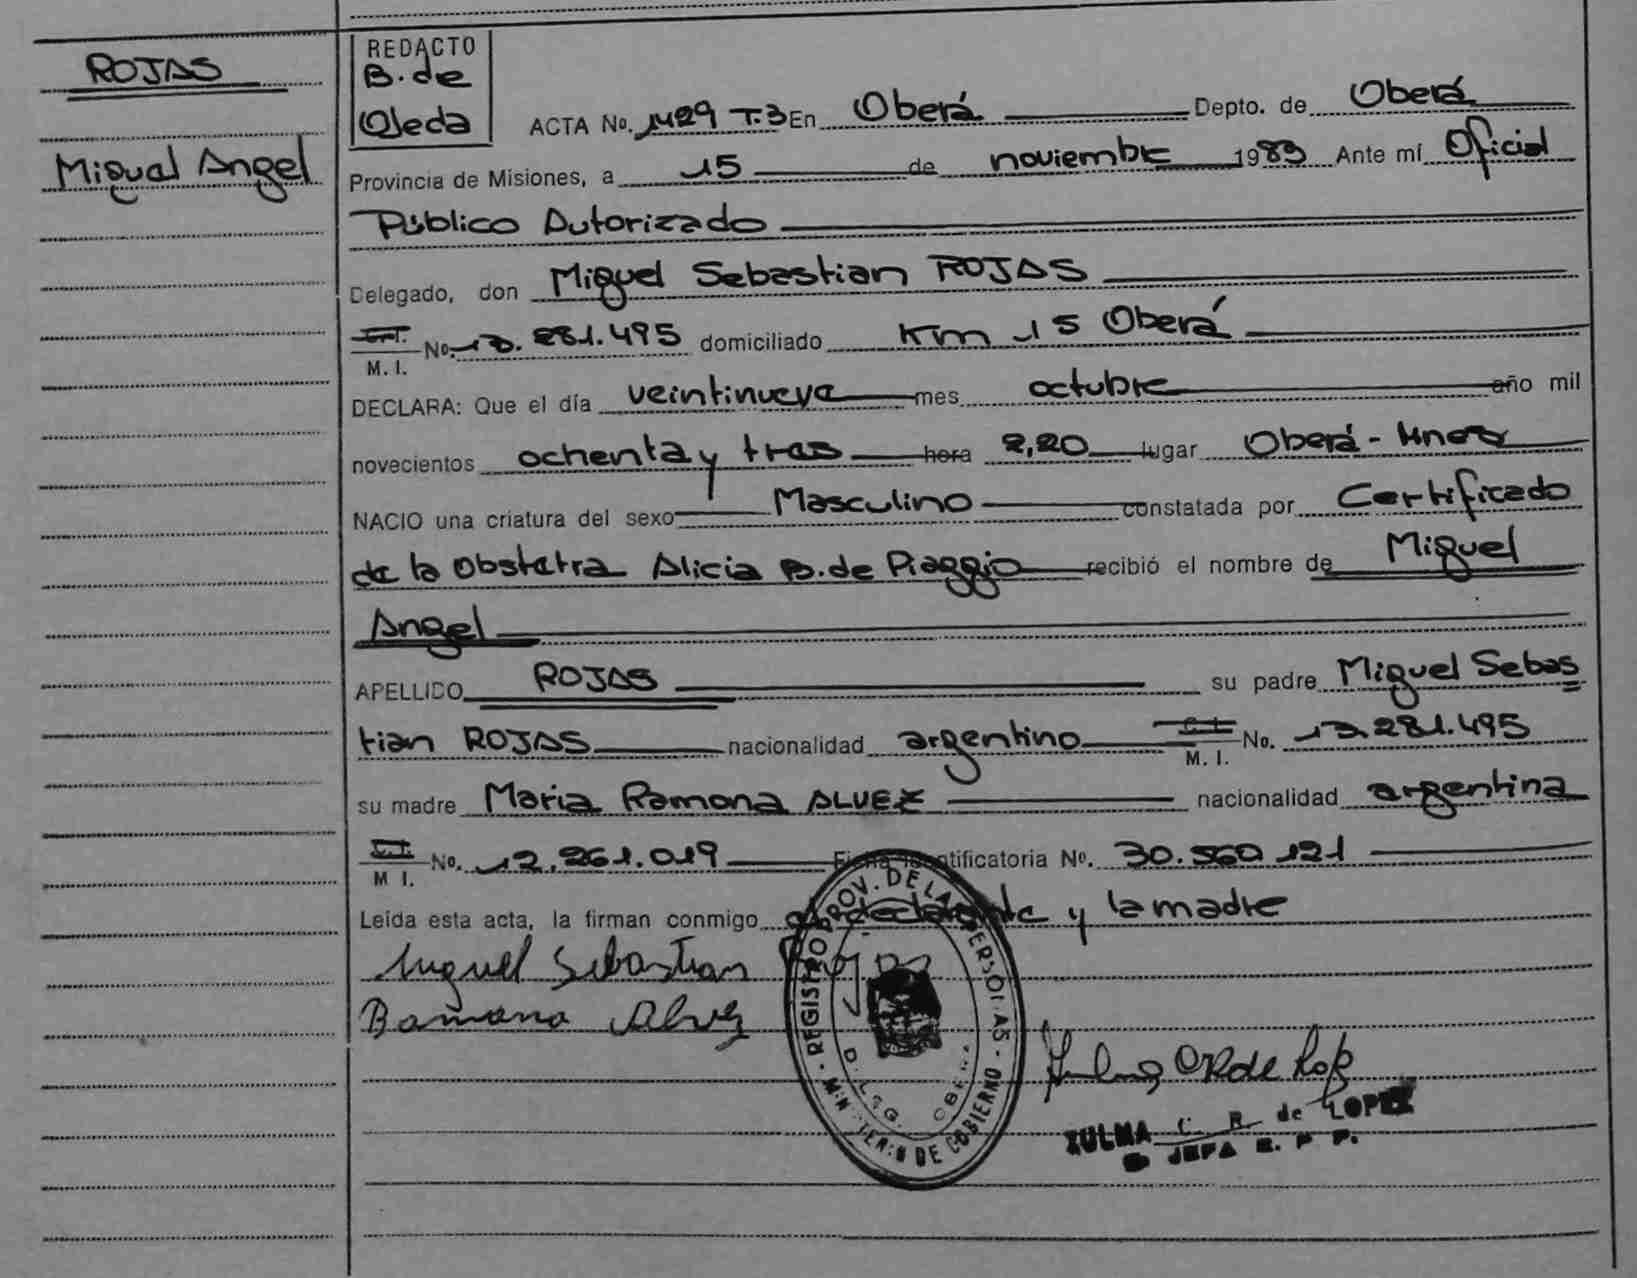 ROJAS
Miguel Angel
REDACTO
B. de
Ojeda
ACTA No. 1429 T.3 En Oberá Depto. de Oberá
Provincia de Misiones, a 15 de noviembre 1983 Ante mí Oficial
Público Autorizado
Delegado, don Miguel Sebastian ROJAS
C.I.
M. I. No. 13.281.495 domiciliado Km 15 Oberá
DECLARA: Que el día veintinueve mes octubre año mil
novecientos ochenta y tres hora 2,20 lugar Oberá -
NACIO una criatura del sexo Masculino constatada por Certificado
de la Obstetra Alicia B. de Piaggio recibió el nombre de Miguel
Angel
APELLIDO ROJAS su padre Miguel Sebas
tian ROJAS nacionalidad argentino C.I. M. I. No. 13.281.495
su madre Maria Ramona ALVEZ nacionalidad argentina
C.I. M I. No. 12.261.019 Ficha Identificatoria No. 30.560.121
Leída esta acta, la firman conmigo el declarante y la madre
Miguel Sebastian Rojas
Ramona Alvez
REGISTRO PROV. DE LAS PERSONAS
MINISTERIO DE GOBIERNO
DELEG. OBERA
ZULMA C. R. de LOPEZ
JEFA R. P. P.